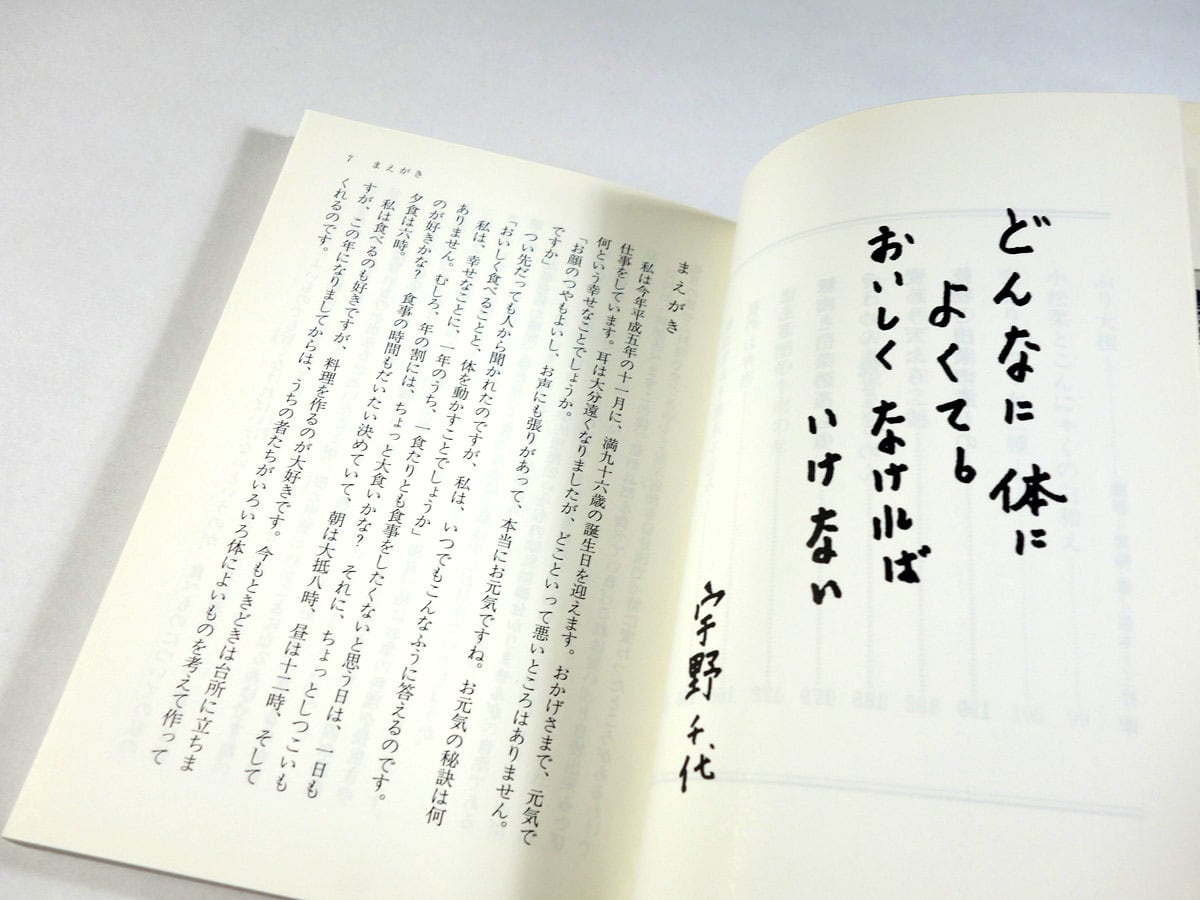 どんなに体に
よくても
おいしくなければ
いけない
宇野千代
まえがき
私は今年平成五年の十一月に、満九十六歳の誕生日を迎えます。おかげさまで、元気で
仕事をしています。耳は大分遠くなりましたが、どこといって悪いところはありません。
何という幸せなことでしょうか。
「お顔のつやもよいし、お声にも張りがあって、本当にお元気ですね。お元気の秘訣は何
ですか」
つい先だっても人から聞かれたのですが、私は、いつでもこんなふうに答えるのです。
「おいしく食べることと、体を動かすことでしょうか」
私は、幸せなことに、一年のうち、一食たりとも食事をしたくないと思う日は、一日も
ありません。むしろ、年の割には、ちょっと大食いかな? それに、ちょっとしつこいも
のが好きかな? 食事の時間もだいたい決めていて、朝は大抵八時、昼は十二時、そして
夕食は六時。
私は食べるのも好きですが、料理を作るのが大好きです。今もときどきは台所に立ちま
すが、この年になりましてからは、うちの者たちがいろいろ体によいものを考えて作って
くれるのです。
7 まえがき